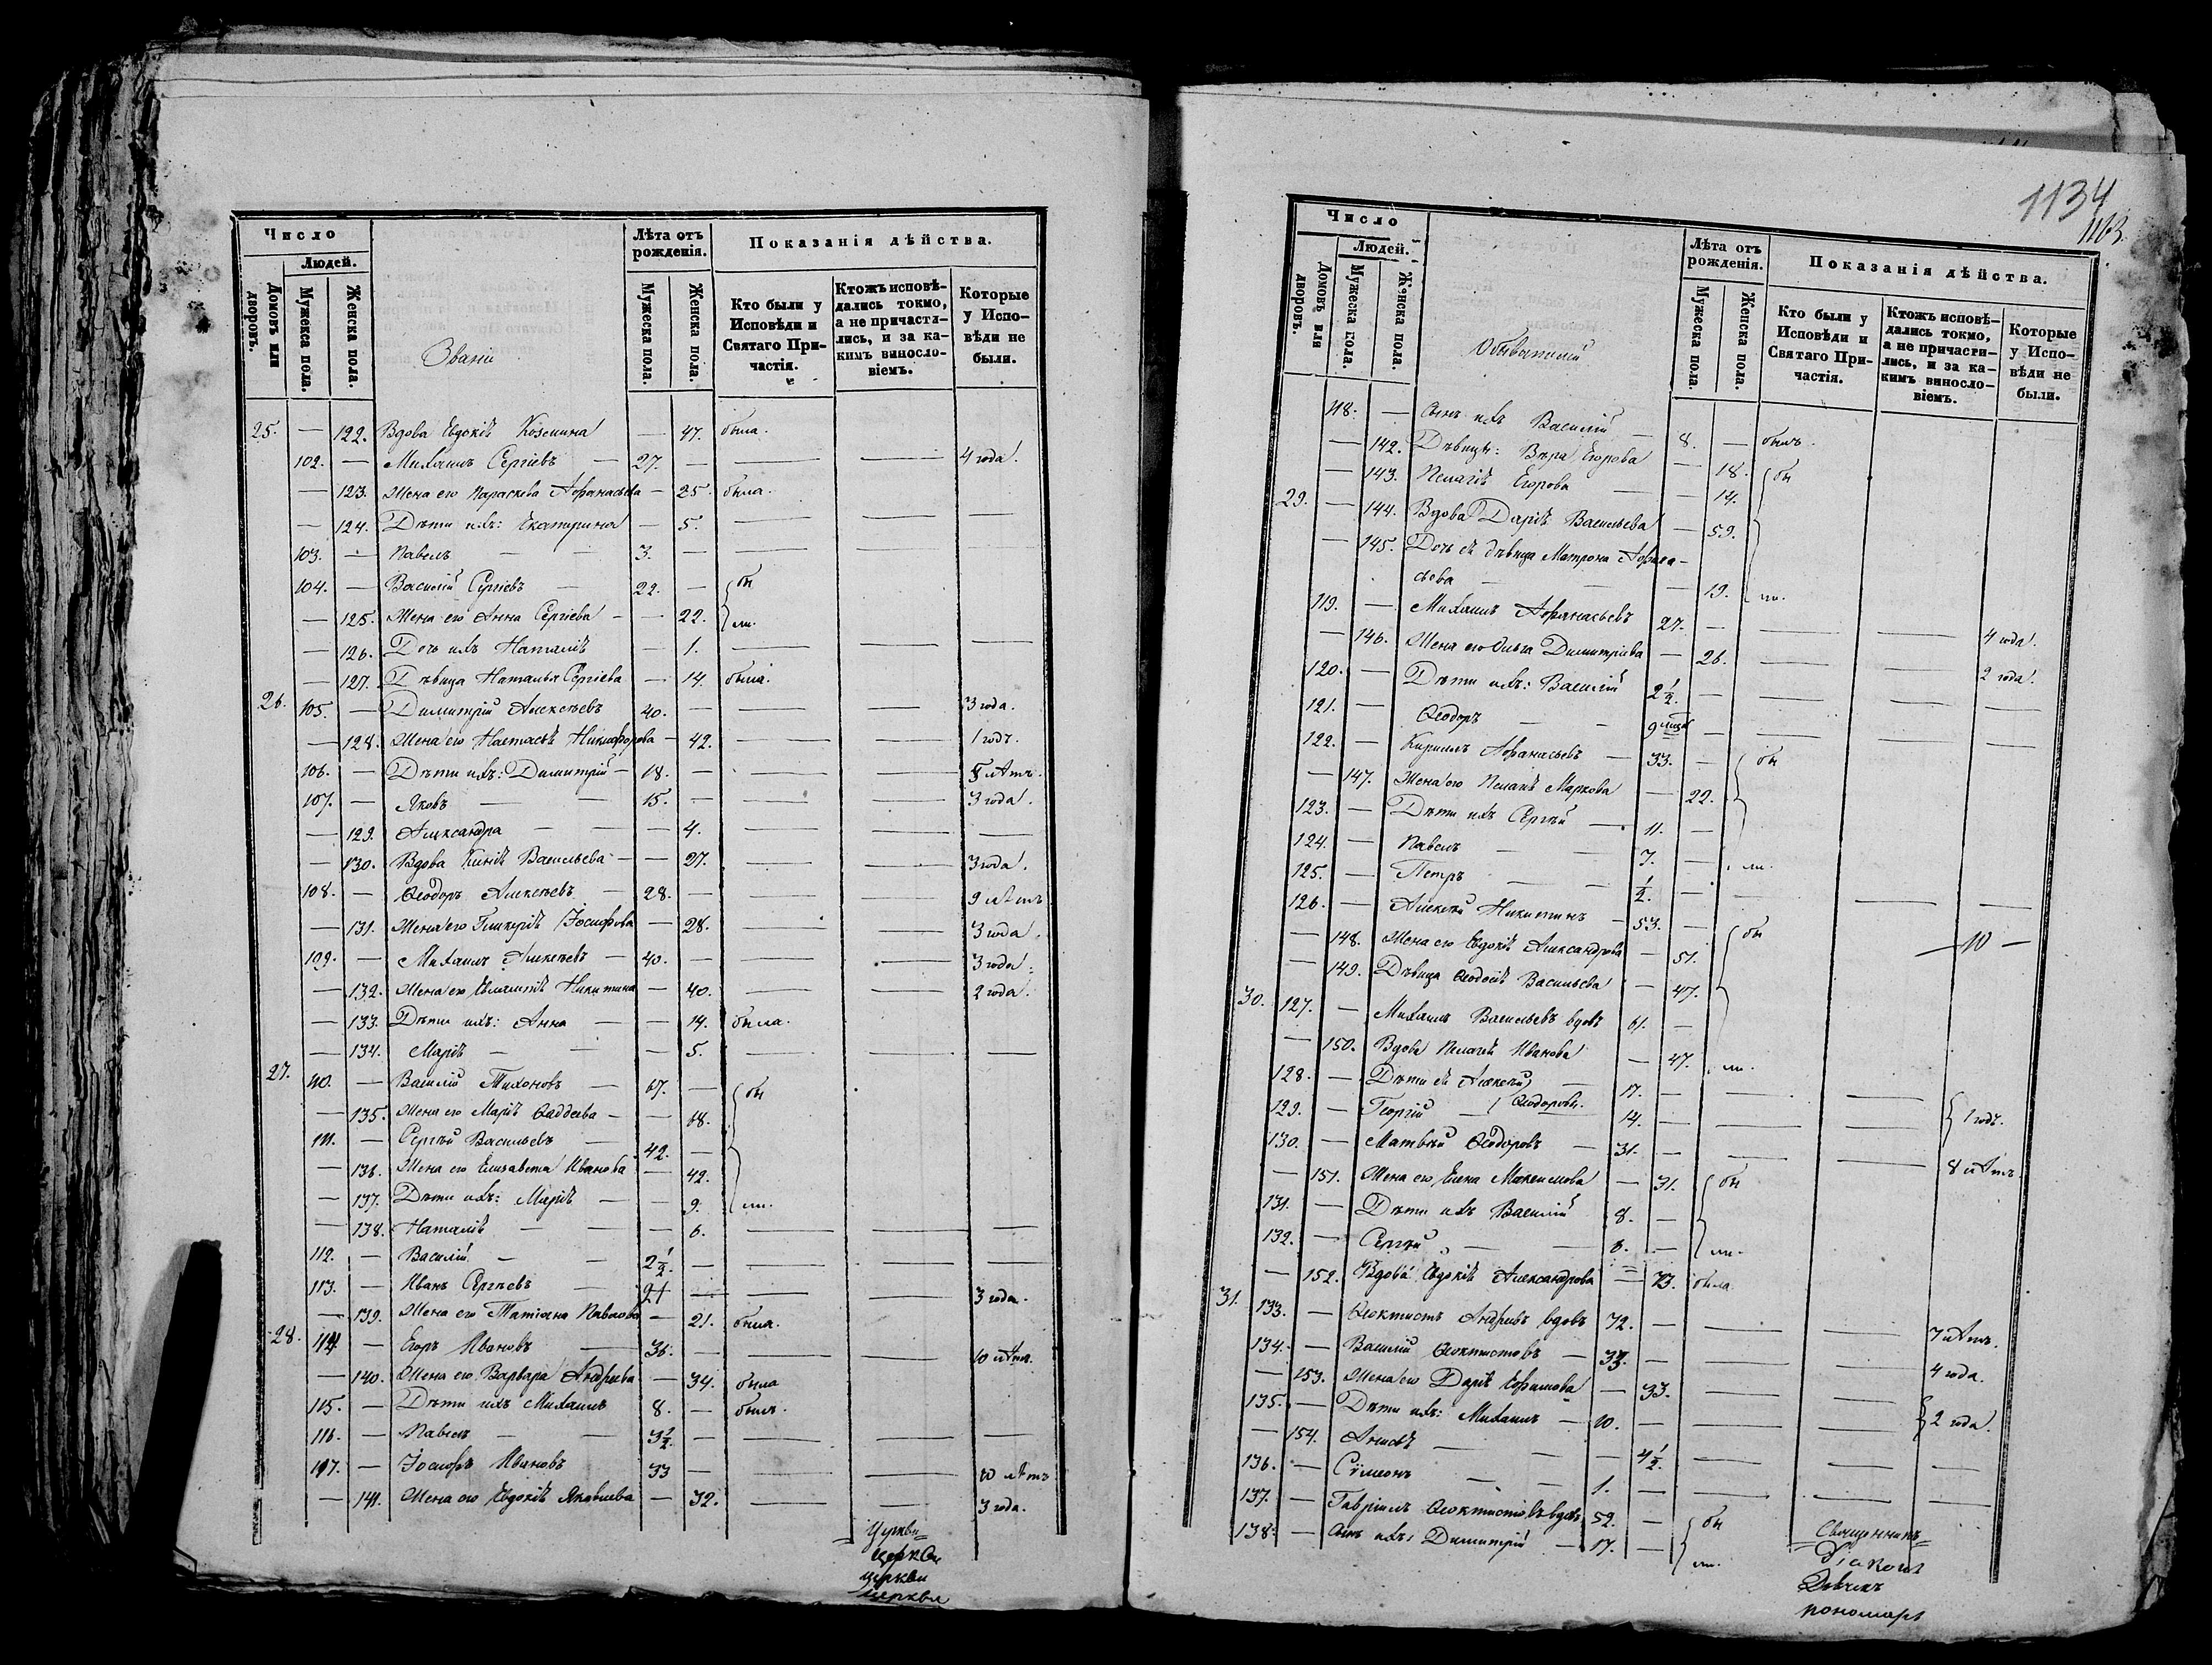 Число
Лѣта отъ рожденія.
Показанія дѣйства.
Людей.
Домовъ или дворовъ.
Мужеска пола.
Женска пола.
Званіе
Мужеска пола.
Женска пола.
Кто были у Исповѣди и Святаго Причастія.
Ктожъ исповѣдались токмо, а не причастились, и за какимъ винословіемъ.
Которые у Исповѣди не были.
25. — 122. Вдова Евдокія Козмина — 47. была.
102. — Михаилъ Сергіевъ — 27. — — — 4 года.
— 123. Жена его Параскева Афанасьева — 25. была.
— 124. Дѣти ихъ: Екатерина — 5. — — —
103. — Павелъ — — 3. — — — —
104. — Василій Сергіевъ — 22. — бы
— 125. Жена его Анна Сергіева — — 22. ли.
— 126. Дочь ихъ Наталія — 1. — — —
— 127. Дѣвица Наталья Сергіева — 14. была.
26. 105. — Димитрій Алексѣевъ 40. — — — 3 года.
— 128. Жена его Настасья Никифорова — 42. — — 1 годъ.
106. — Дѣти ихъ: Димитрій — 18. — — — лѣтъ.
107. — Яковъ — — 15. — — — 3 года.
— 129. Александра — — — 4. — — —
— 130. Вдова Васильева — — 27. — — 3 года.
108. — Ѳеодоръ Алексѣевъ — 28. — — — 9 лѣтъ
— 131. Жена его Гликерія Іосифова — 28. — — 3 года.
109. — Михаилъ Алексѣевъ — 40. — — — 3 года.
— 132. Жена его Евлампія Никитина — 40. — — 2 года.
— 133. Дѣти ихъ: Анна — — 14. была.
— 134. Марія — — — 5. — — —
27. 110. — Василій Тихоновъ — 67. — бы
— 135. Жена его Марія Ѳаддеева — — 68.
111. — Сергѣй Васильевъ — 42. —
— 136. Жена его Елизавета Иванова — 42.
— 137. Дѣти ихъ: Марія — — 9. ли.
— 138. Наталія — — — 6. — — —
112. — Василій — — 2½. — — — —
113. — Иванъ Сергѣевъ — 21 — — — 3 года.
— 139. Жена его Татіана Павлова — 21. была.
28. 114 — Егоръ Ивановъ — 36. — — — 10 лѣтъ.
— 140. Жена его Варвара Андреева — 34. была
115. — Дѣти ихъ Михаилъ 8. — былъ.
116. — Павелъ — — 3½. — — — —
117. — Іосифъ Ивановъ 33 — — — 10 лѣтъ
— 141. Жена его Евдокія Яковлева — 32. — — 3 года.
Церкви
церкви
церкви
церкви
1134
1163.
Число
Лѣта отъ рожденія.
Показанія дѣйства.
Людей.
Домовъ или дворовъ.
Мужеска пола.
Женска пола.
Обыватели
Мужеска пола.
Женска пола.
Кто были у Исповѣди и Святаго Причастія.
Ктожъ исповѣдались токмо, а не причастились, и за какимъ винословіемъ.
Которые у Исповѣди не были.
118. — Сынъ ихъ Василій — 8. — былъ.
— 142. Дѣвицы: Вѣра Егорова — 18. бы
— 143. Пелагія Егорова — — 14.
29. — 144. Вдова Дарія Васильева — 59.
— 145. Дочь ея дѣвица Матрона Афана-
сьева — — — 19. ли.
119. — Михаилъ Афанасьевъ 27. — — — 4 года.
— 146. Жена его Ольга Димитріева — 26. — — 2 года.
120. — Дѣти ихъ: Василій 2½. — — — —
121. — Ѳеодоръ — — 9 — — — —
122. — Кириллъ Афанасьевъ — 33. — бы
— 147. Жена его Пелагія Маркова — 22.
123. — Дѣти ихъ Сергѣй — 11. —
124. — Павелъ — — 7. — ли.
125. — Петръ — — ½. — — — —
126. — Алексѣй Никитинъ — 53. — бы — 10 —
— 148. Жена его Евдокія Александрова — 51.
— 149. Дѣвица Ѳеодосія Васильева — 47.
30. 127. — Михаилъ Васильевъ вдовъ 61. —
— 150. Вдова Пелагія Иванова — 47. ли.
128. — Дѣти ея Алексѣй — 17. — — —
129. — Георгій — Ѳеодоровы. 14. — — — 1 годъ.
130. — Матвѣй Ѳеодоровъ — 31. — — — 8 лѣтъ.
— 151. Жена его Елена Максимова — 31. бы
131. — Дѣти ихъ Василій 8. —
132. — Сергѣй — — 6. — ли.
— 152. Вдова Евдокія Александрова — 73. была
31. 133. — Ѳеоктистъ Андреевъ вдовъ 72. — — — 7 лѣтъ.
134. — Василій Ѳеоктистовъ — 33. — — — 4 года.
— 153. Жена его Дарія Ефимова — 33. — —
135. — Дѣти ихъ: Михаилъ — 10. — — — 2 года.
— 154. Анисья — — — 4½. — — —
136. — Сумеонъ — — 1. — — — —
137. — Гавріилъ Ѳеоктистовъ вдовъ 52. — бы
138. — Сынъ ихъ: Димитрій — 17. — ли.
Священникъ
Діаконъ
Дьячекъ
пономарь